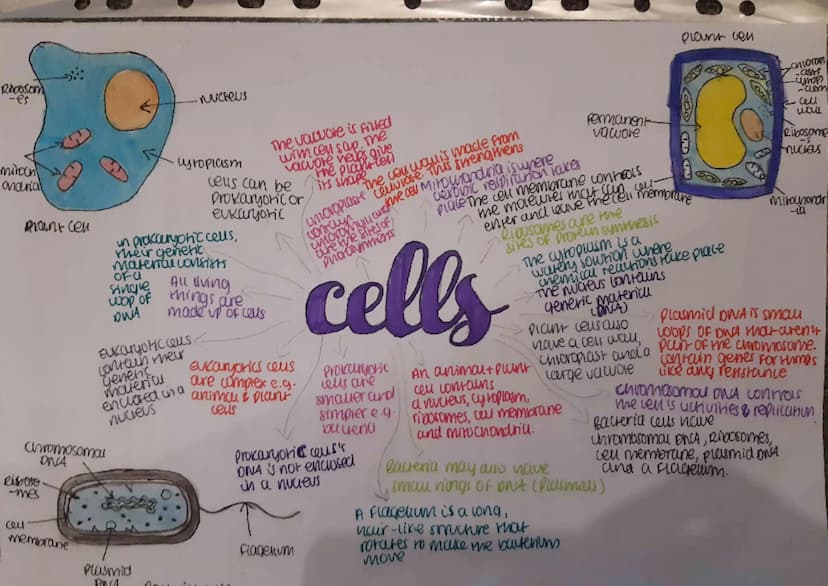 Ribosom
-es
nucleus
mitoch
ondria
cytoplasm
Plant Cell
cells can be
prokaryotic or
eukaryotic
The vacuole is filled
with cell sap. The
vacuole helps give
the plant cell
its shape
chloroplast
contain
chlorophyll and
are the sites of
photosynthesis
The cell wall is made from
cellulose. This strengthens
the cell
Mitochondria is where
aerobic respiration takes
place
The cell membrane controls
the molecules that can
enter and leave the cell
Ribosomes are the
sites of protein synthesis
The cytoplasm is a
watery solution where
chemical reactions take place
The nucleus contains
genetic material
(DNA)
plant cell
permanent
vacuole
chloropl
-asts
cytop
-lasm
cell
wall
Ribosomes
nucleus
mitochondr
-ia
cell
membrane
cells
in prokaryotic cells,
their genetic
material consists
of a
single
loop of
DNA
All living
things are
made up of cells
Eukaryotic cells
contain their
genetic
material
enclosed in a
nucleus
eukaryotics cells
are complex e.g.
animal & plant
cells
Prokaryotic
cells are
smaller and
simpler e.g.
bacteria
An animal + plant
cell contains
a nucleus, cytoplasm,
ribosomes, cell membrane
and mitochondria.
plant cells also
have a cell wall,
chloroplast and a
large vacuole
Plasmid DNA is small
loops of DNA that aren't
part of the chromosome.
contain genes for things
like drug resistance
Chromosomal DNA controls
the cell's activities & replication.
Bacteria cells have
chromosomal DNA, ribosomes,
cell membrane, plasmid DNA
and a flagellum.
Prokaryotic cells's
DNA is not enclosed
in a nucleus
Bacteria may also have
small rings of DNA (Plasmids)
A flagellum is a long,
hair-like structure that
rotates to make the bacterium
move
Chromosomal
DNA
Riboso
-mes
cell
membrane
plasmid
DNA
flagellum